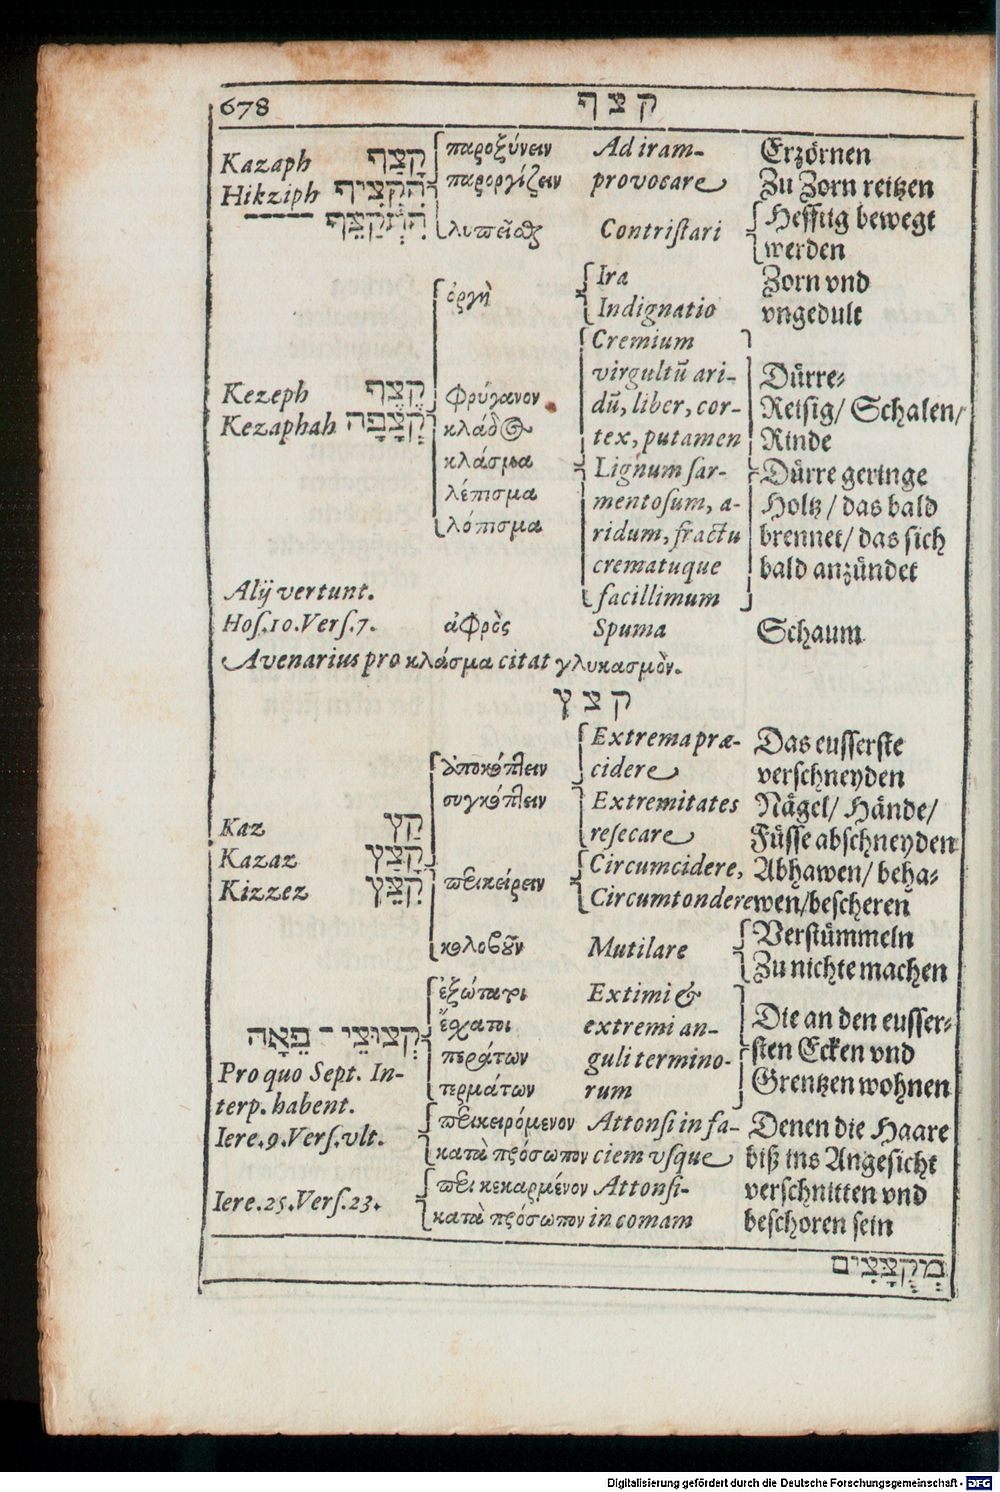 678 קצף
Kazaph קָצַף παροξύνειν Ad iram- Erzörnen
Hikziph הִקְצִיף παροργίζειν provocare Zu Zorn reitzen
---- הִתְקַצֵּף λυπεῖσθαι Contriſtari Hefftig bewegt
werden
ὀργὴ Ira Zorn vnd
Indignatio vngedult
Cremium
virgultũ ari- Dürre-
Kezeph קֶצֶף φρύγανον dũ, liber, cor- Reiſig/ Schalen/
Kezaphah קְצָפָה κλάδος tex, putamen Rinde
κλάσμα Lignum ſar- Dürre geringe
λέπισμα mentoſum, a- Holtz/ das bald
λόπισμα ridum, fractu brennet/ das ſich
crematuque bald anzündet
Alij vertunt. facillimum
Hoſ.10.Verſ.7. ἀφρὸς Spuma Schaum
Avenarius pro κλάσμα citat γλυκασμὸν.
קצץ
Extrema præ- Das euſſerſte
ἀποκόπτειν cidere verſchneyden
συγκόπτειν Extremitates Nägel/ Hände/
Kaz קַץ reſecare Füſſe abſchneyden
Kazaz קָצַץ Circumcidere, Abhawen/ beha-
Kizzez קִצֵּץ περικείρειν Circumtondere wen/beſcheren
κολοβοῦν Mutilare Verſtümmeln
Zu nichte machen
ἐξώτατοι Extimi &
ἔσχατοι extremi an- Die an den euſſer-
קְצוּצֵי־פֵאָה περάτων guli termino- ſten Ecken vnd
Pro quo Sept. In- τερμάτων rum Grentzen wohnen
terp. habent. περικειρόμενον Attonſi in fa- Denen die Haare
Iere.9.Verſ.vlt. κατὰ πρόσωπον ciem vſque biß ins Angeſicht
Iere.25.Verſ.23. περικεκαρμένον Attonſi- verſchnitten vnd
κατὰ πρόσωπον in comam beſchoren ſein
מְקֻצָּצִים
Digitalisierung gefördert durch die Deutsche Forschungsgemeinschaft - DFG